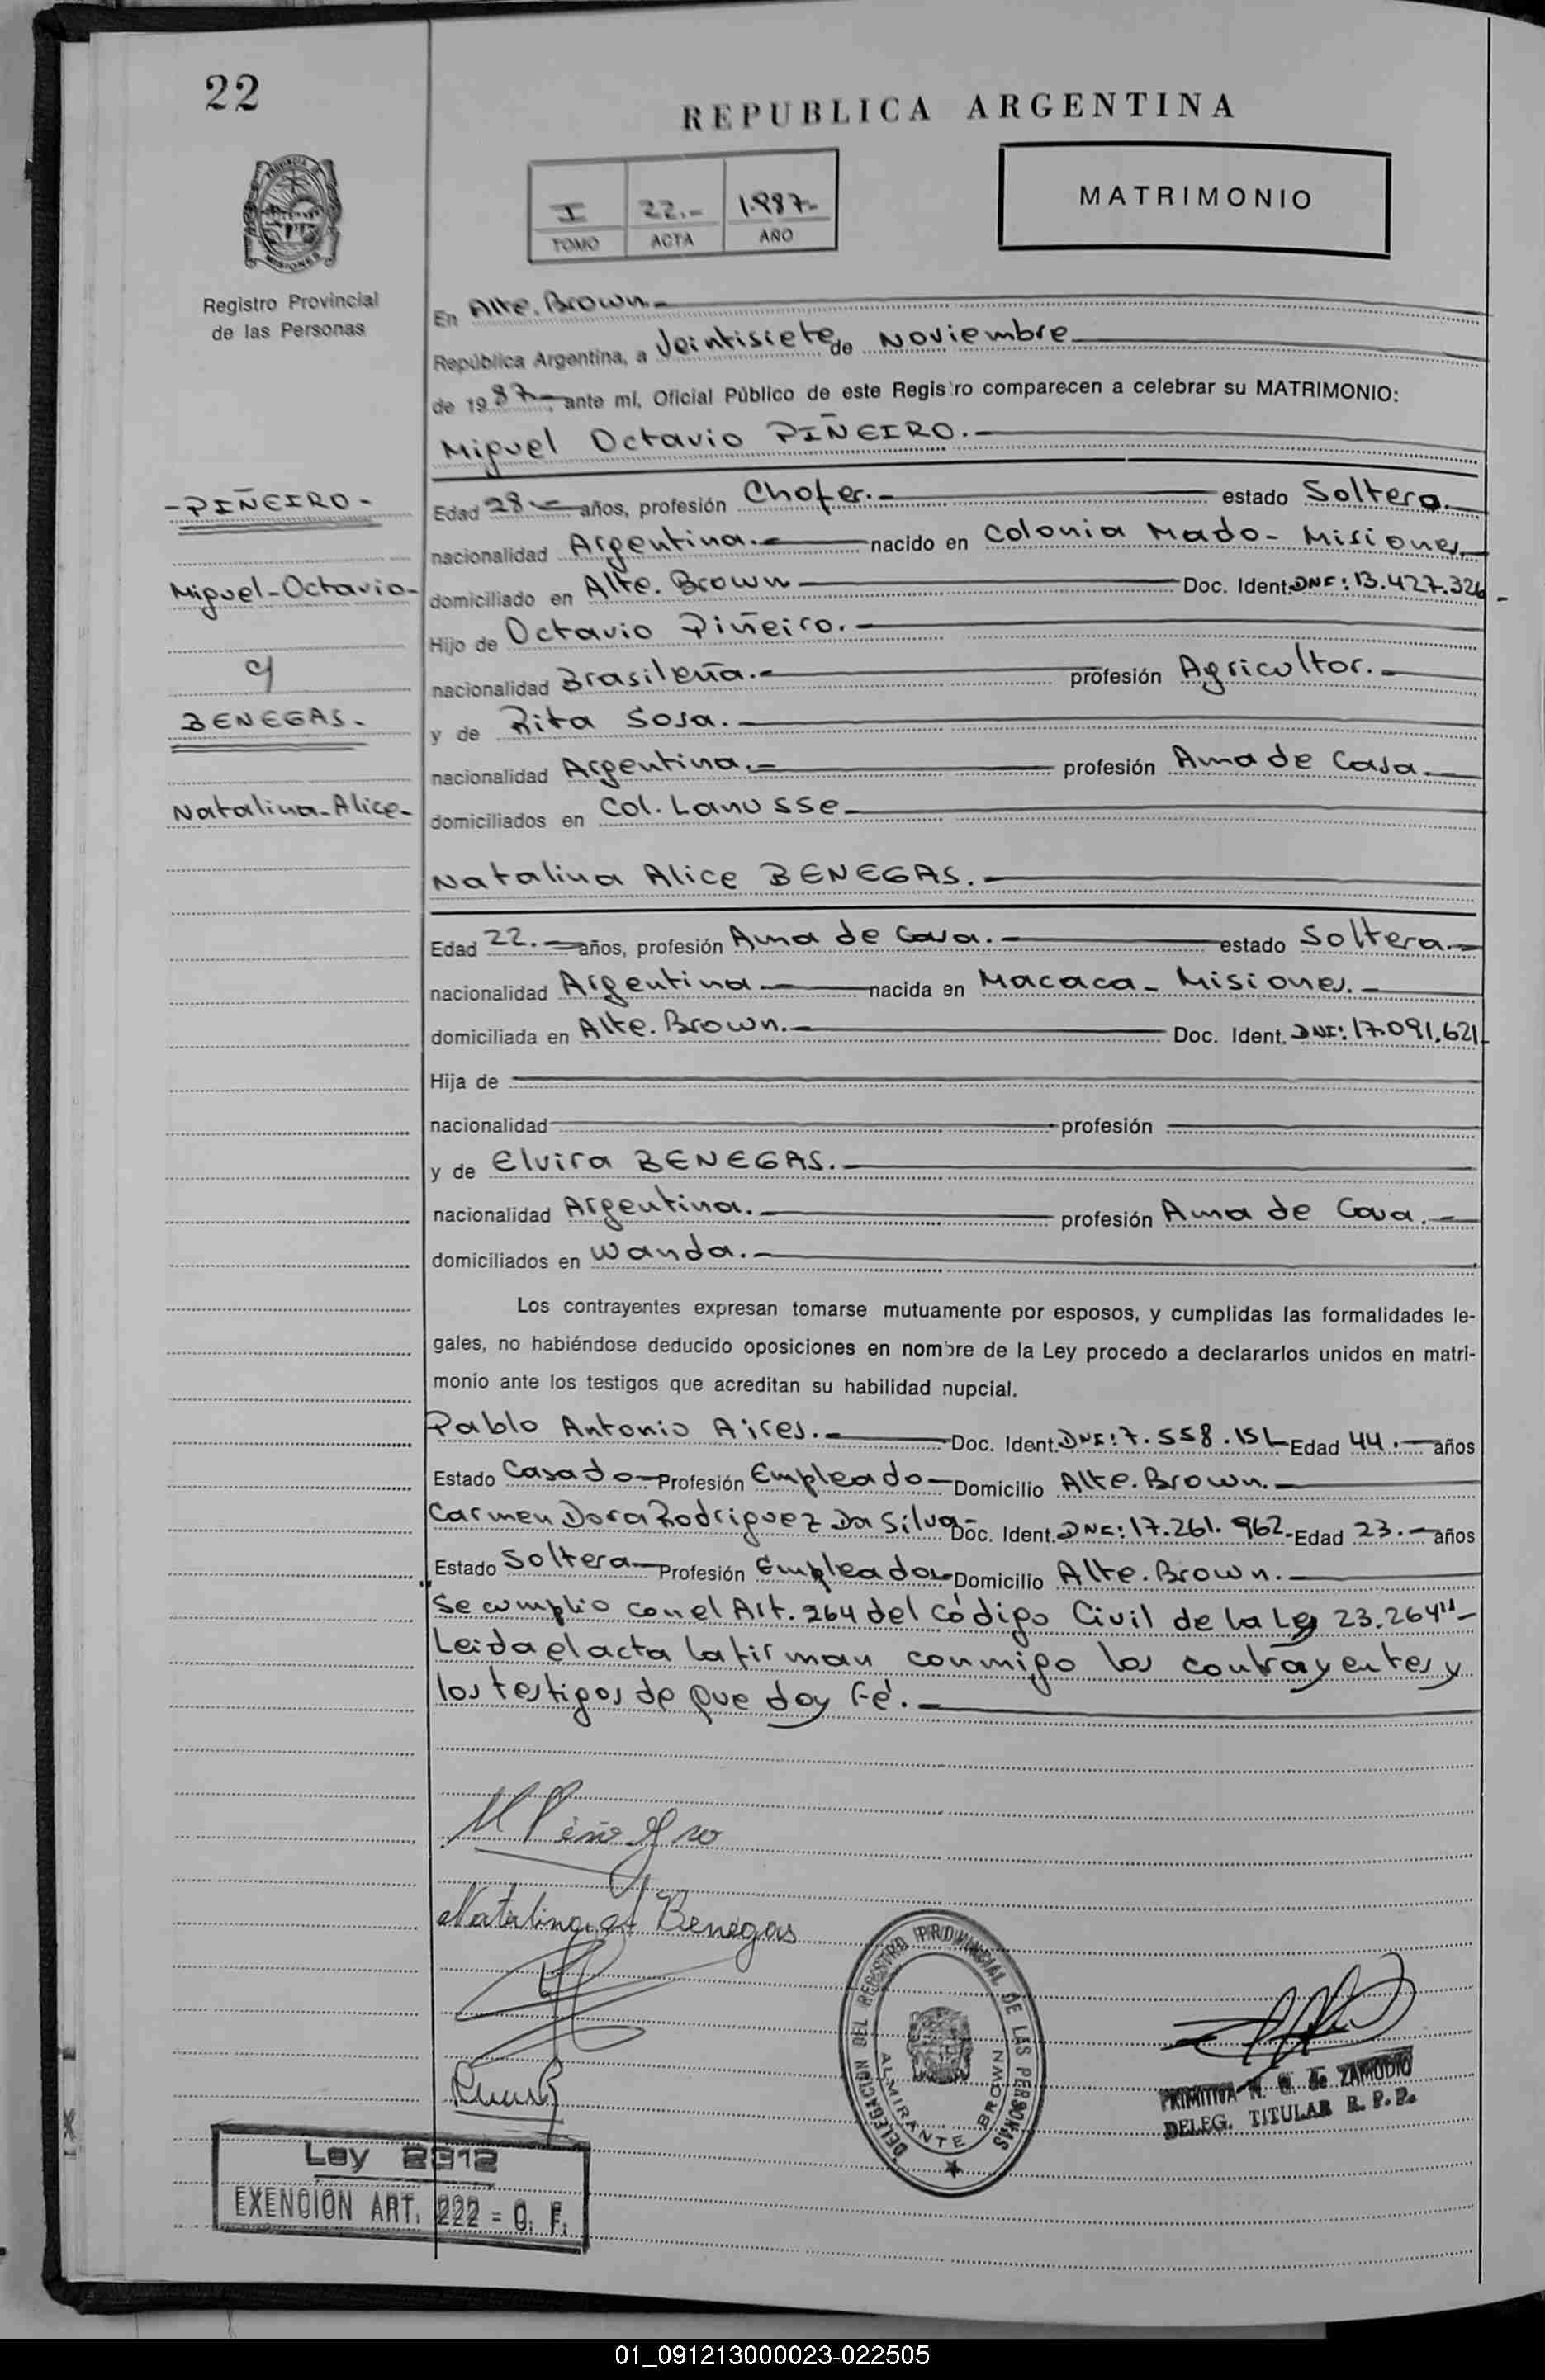 22
REPUBLICA ARGENTINA
I 22.- 1.987-
TOMO ACTA AÑO
MATRIMONIO
PROVINCIA
MISIONES
Registro Provincial
de las Personas
En Alte. Brown.-
República Argentina, a Veintisiete de Noviembre
de 1987- ante mí, Oficial Público de este Registro comparecen a celebrar su MATRIMONIO:
Miguel Octavio PIÑEIRO.-
-PIÑEIRO-
Miguel-Octavio-
y
BENEGAS-
Natalina-Alice-
Edad 28.- años, profesión Chofer.- estado Soltero.-
nacionalidad Argentina.- nacido en Colonia Mado- Misiones.-
domiciliado en Alte. Brown Doc. Ident. DNI: 13.427.326-
Hijo de Octavio Piñeiro.-
nacionalidad Brasileña.- profesión Agricultor.-
y de Rita Sosa.-
nacionalidad Argentina.- profesión Ama de Casa.-
domiciliados en Col. Lanusse-
Natalina Alice BENEGAS.-
Edad 22.- años, profesión Ama de Casa.- estado Soltera.-
nacionalidad Argentina.- nacida en Macaca- Misiones.-
domiciliada en Alte. Brown.- Doc. Ident. DNI: 17.091.621-
Hija de
nacionalidad profesión
y de Elvira BENEGAS.-
nacionalidad Argentina.- profesión Ama de Casa.-
domiciliados en Wanda.-
Los contrayentes expresan tomarse mutuamente por esposos, y cumplidas las formalidades le-
gales, no habiéndose deducido oposiciones en nombre de la Ley procedo a declararlos unidos en matri-
monio ante los testigos que acreditan su habilidad nupcial.
Pablo Antonio Aires.- Doc. Ident. DNI: 7.558.151- Edad 44.- años
Estado Casado- Profesión Empleado- Domicilio Alte. Brown.-
Carmen Dora Rodriguez Da Silva- Doc. Ident. DNI: 17.261.962- Edad 23.- años
Estado Soltera- Profesión Empleada- Domicilio Alte. Brown.-
"Se cumplio con el Art. 264 del Código Civil de la Ley 23.264"-
Leida el acta la firman conmigo los contrayentes y
los testigos de que doy Fé.-
M Piñeyro
Natalina A Benegas
DELEGACION DEL REGISTRO PROVINCIAL DE LAS PERSONAS
ALMIRANTE BROWN
PRIMITIVA N. G. de ZAMUDIO
DELEG. TITULAR R. P. P.
Ley 2312
EXENCION ART. 222 = C. F.
01_091213000023-022505